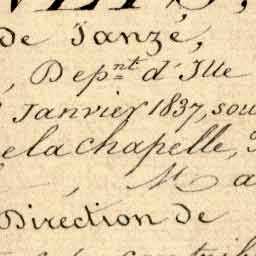 de Janzé,
, Dep.nt d'Ille
Janvier 1837, sou
e la chapelle,
Direction de